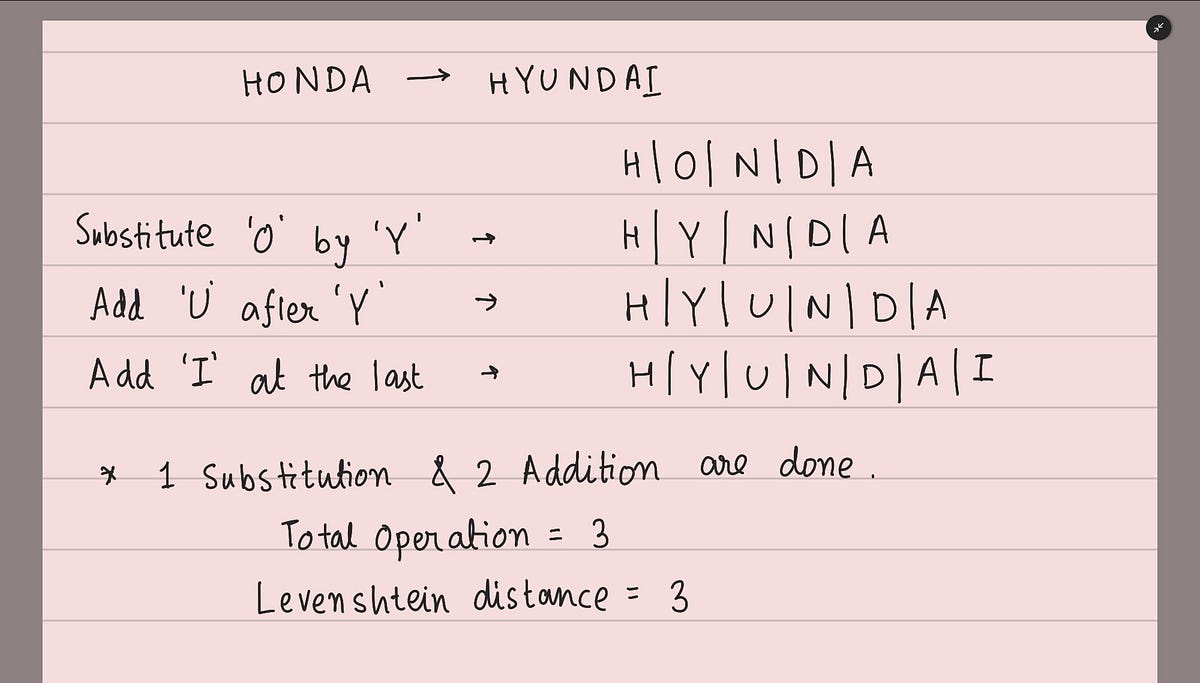 HONDA → HYUNDAI
H|O|N|D|A
Substitute 'O' by 'Y' → H|Y|N|D|A
Add 'U' after 'Y' → H|Y|U|N|D|A
Add 'I' at the last → H|Y|U|N|D|A|I
* 1 Substitution & 2 Addition are done.
Total Operation = 3
Levenshtein distance = 3